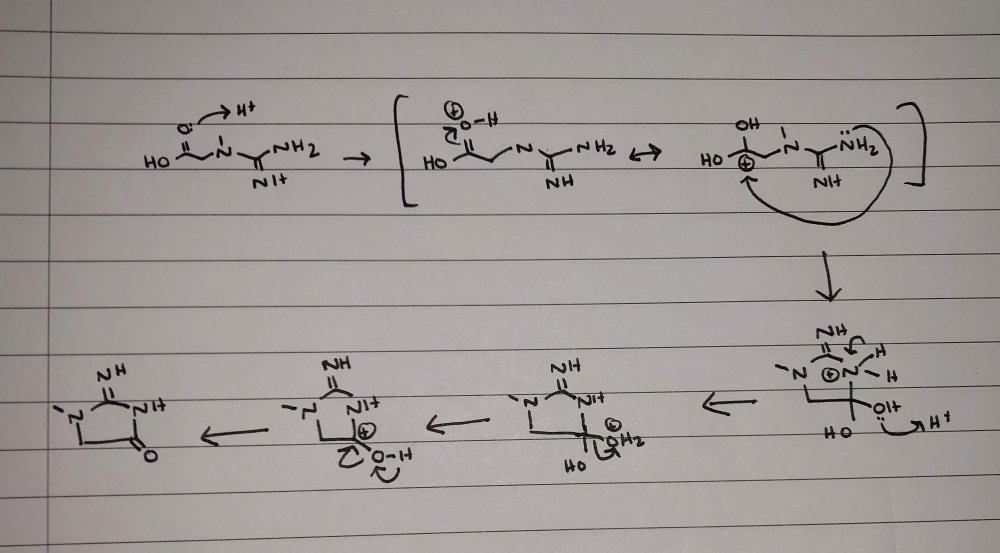 Ö: H+ ⊕ O-H OH
HO N NH2 HO N NH2 HO ⊕ N N̈H2
NH NH NH
NH
N ⊕ N H H
OH H+
HO
NH NH NH
N NH N NH N NH
O ⊕ O-H ⊕ OH2
HO